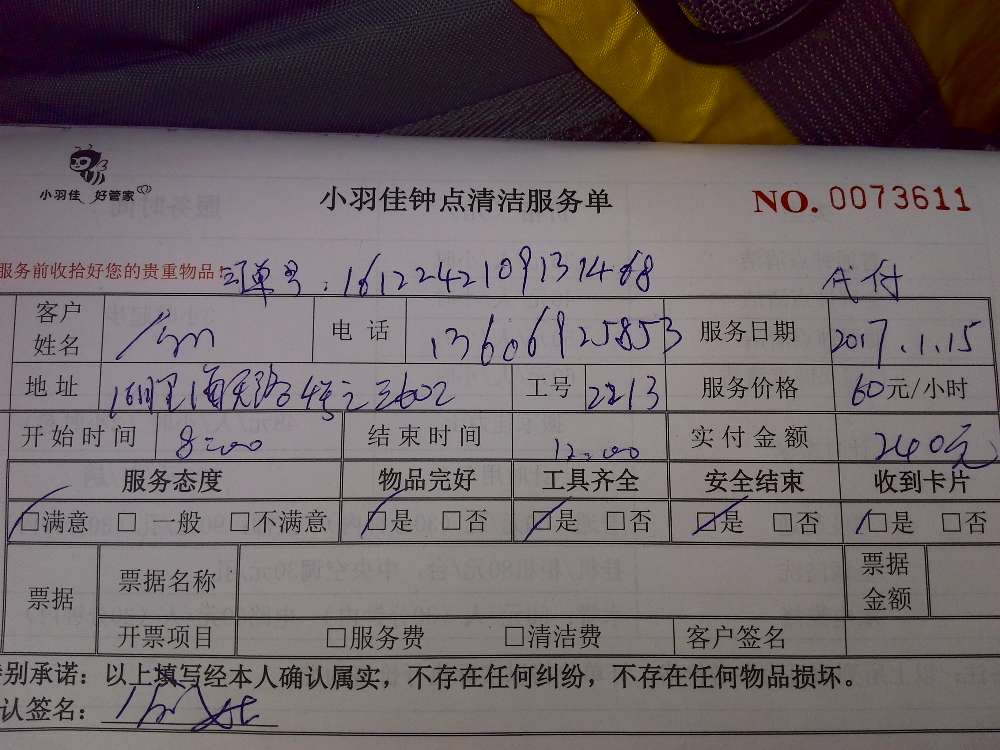 小羽佳 好管家
小羽佳钟点清洁服务单 NO. 0073611
服务前收拾好您的贵重物品!
订单号:1612242109131468 代付
客户姓名 电话 13606925853 服务日期 2017.1.15
地址 602 工号 2213 服务价格 60元/小时
开始时间 8:00 结束时间 12:00 实付金额 240元
服务态度 物品完好 工具齐全 安全结束 收到卡片
□满意 □一般 □不满意 □是 □否 □是 □否 □是 □否 □是 □否
票据 票据名称 票据金额
开票项目 □服务费 □清洁费 客户签名
特别承诺:以上填写经本人确认属实,不存在任何纠纷,不存在任何物品损坏。
认签名: